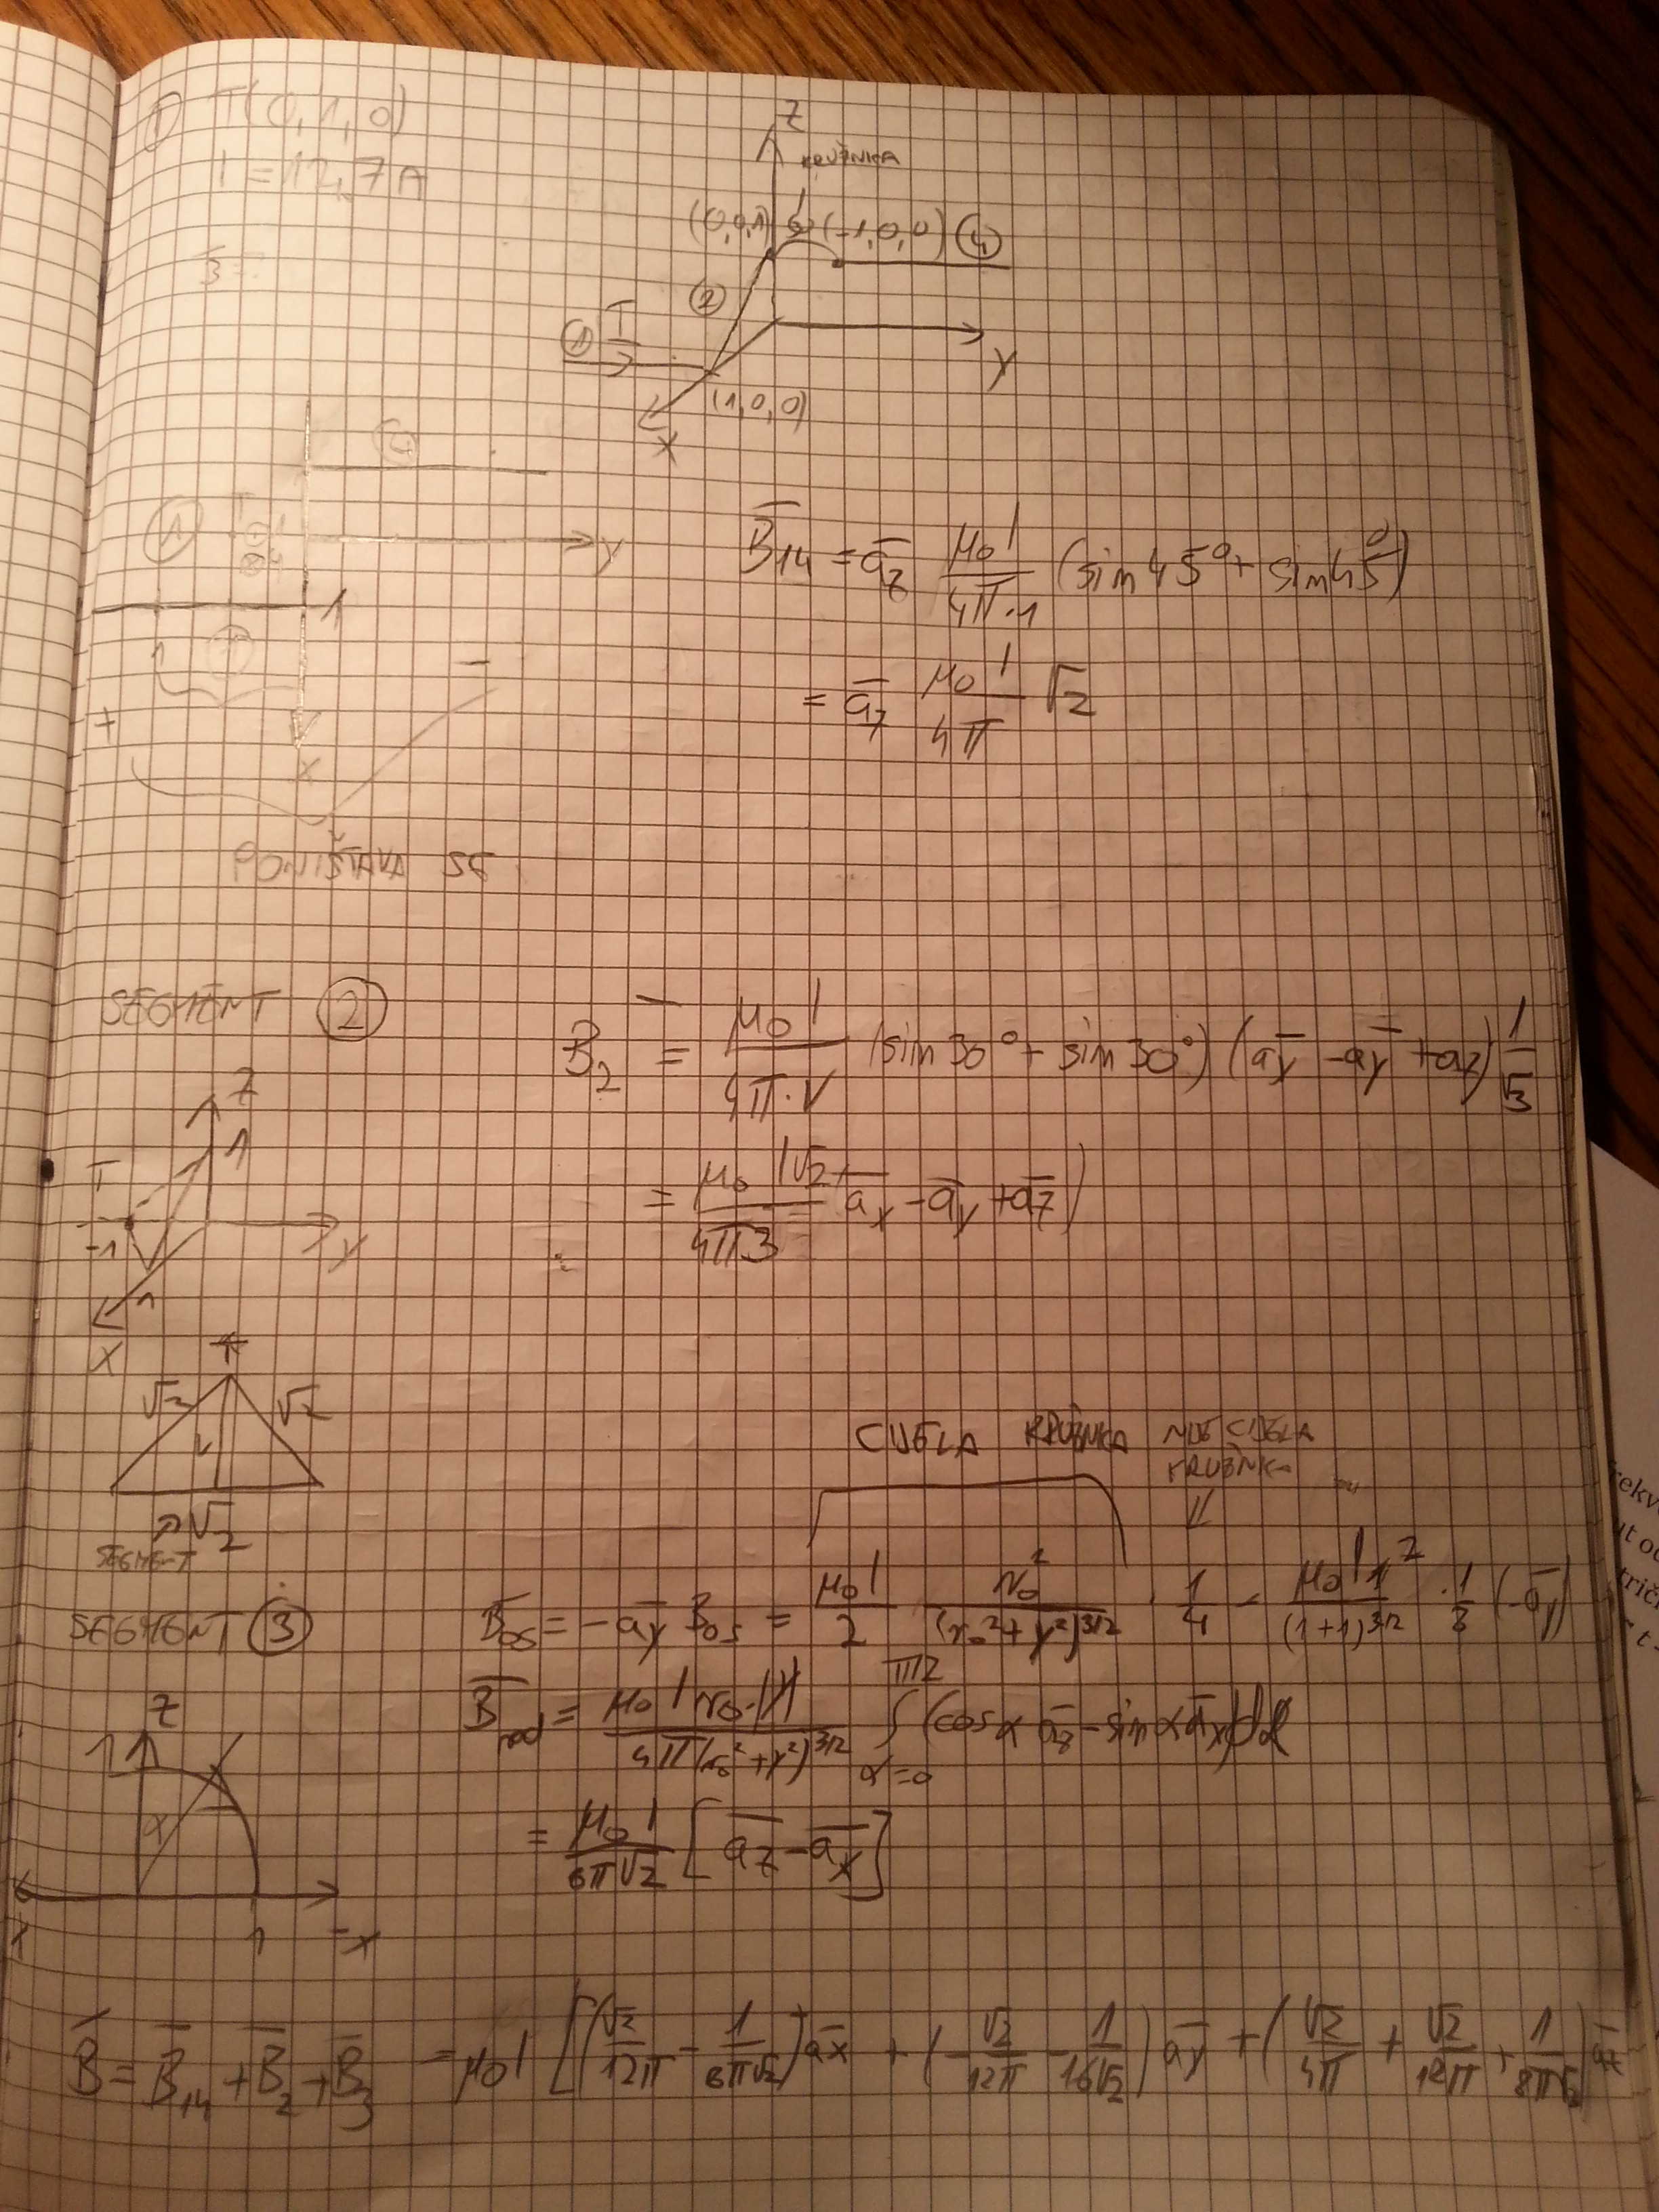 ① T(0,1,0)
I = 12,7 A
B = ?
z
KRUŽNICA
(0,0,1) ③ (-1,0,0) ④
②
① I
y
(1,0,0)
x
④
① T
⊙1
⊗4
y
1
1
+ −
x
PONIŠTAVA SE
B̄₁₄ = āz μ₀I/(4π·1) (sin 45° + sin 45°)
= āz μ₀I/(4π) √2
SEGMENT ②
z
1
T
-1
y
1
x
B̄₂ = μ₀I/(4π·r) (sin 30° + sin 30°) (āy − āy + az) 1/√3
= μ₀I√2/(4π3) (āx − āy + āz)
√2 √2
r
√2
SEGMENT
CIJELA KRUŽNICA NIJE CIJELA
KRUŽNICA
SEGMENT ③
B̄os = −āy Bos = μ₀I/2 r₀²/(r₀²+y²)^3/2 · 1/4 = μ₀I1²/(1+1)^3/2 · 1/8 (−āy)
B̄rad = μ₀I r₀·|y|/(4π(r₀²+y²)^3/2) ∫α=0^π/2 (cosα āz − sinα āx)dα
= μ₀I/(8π√2) [āz − āx]
z
1
α
x 1 -x
B̄ = B̄₁₄ + B̄₂ + B̄₃ = μ₀I [(√2/12π − 1/8π√2) āx + (−√2/12π − 1/16√2) āy + (√2/4π + √2/12π + 1/8π√2) āz